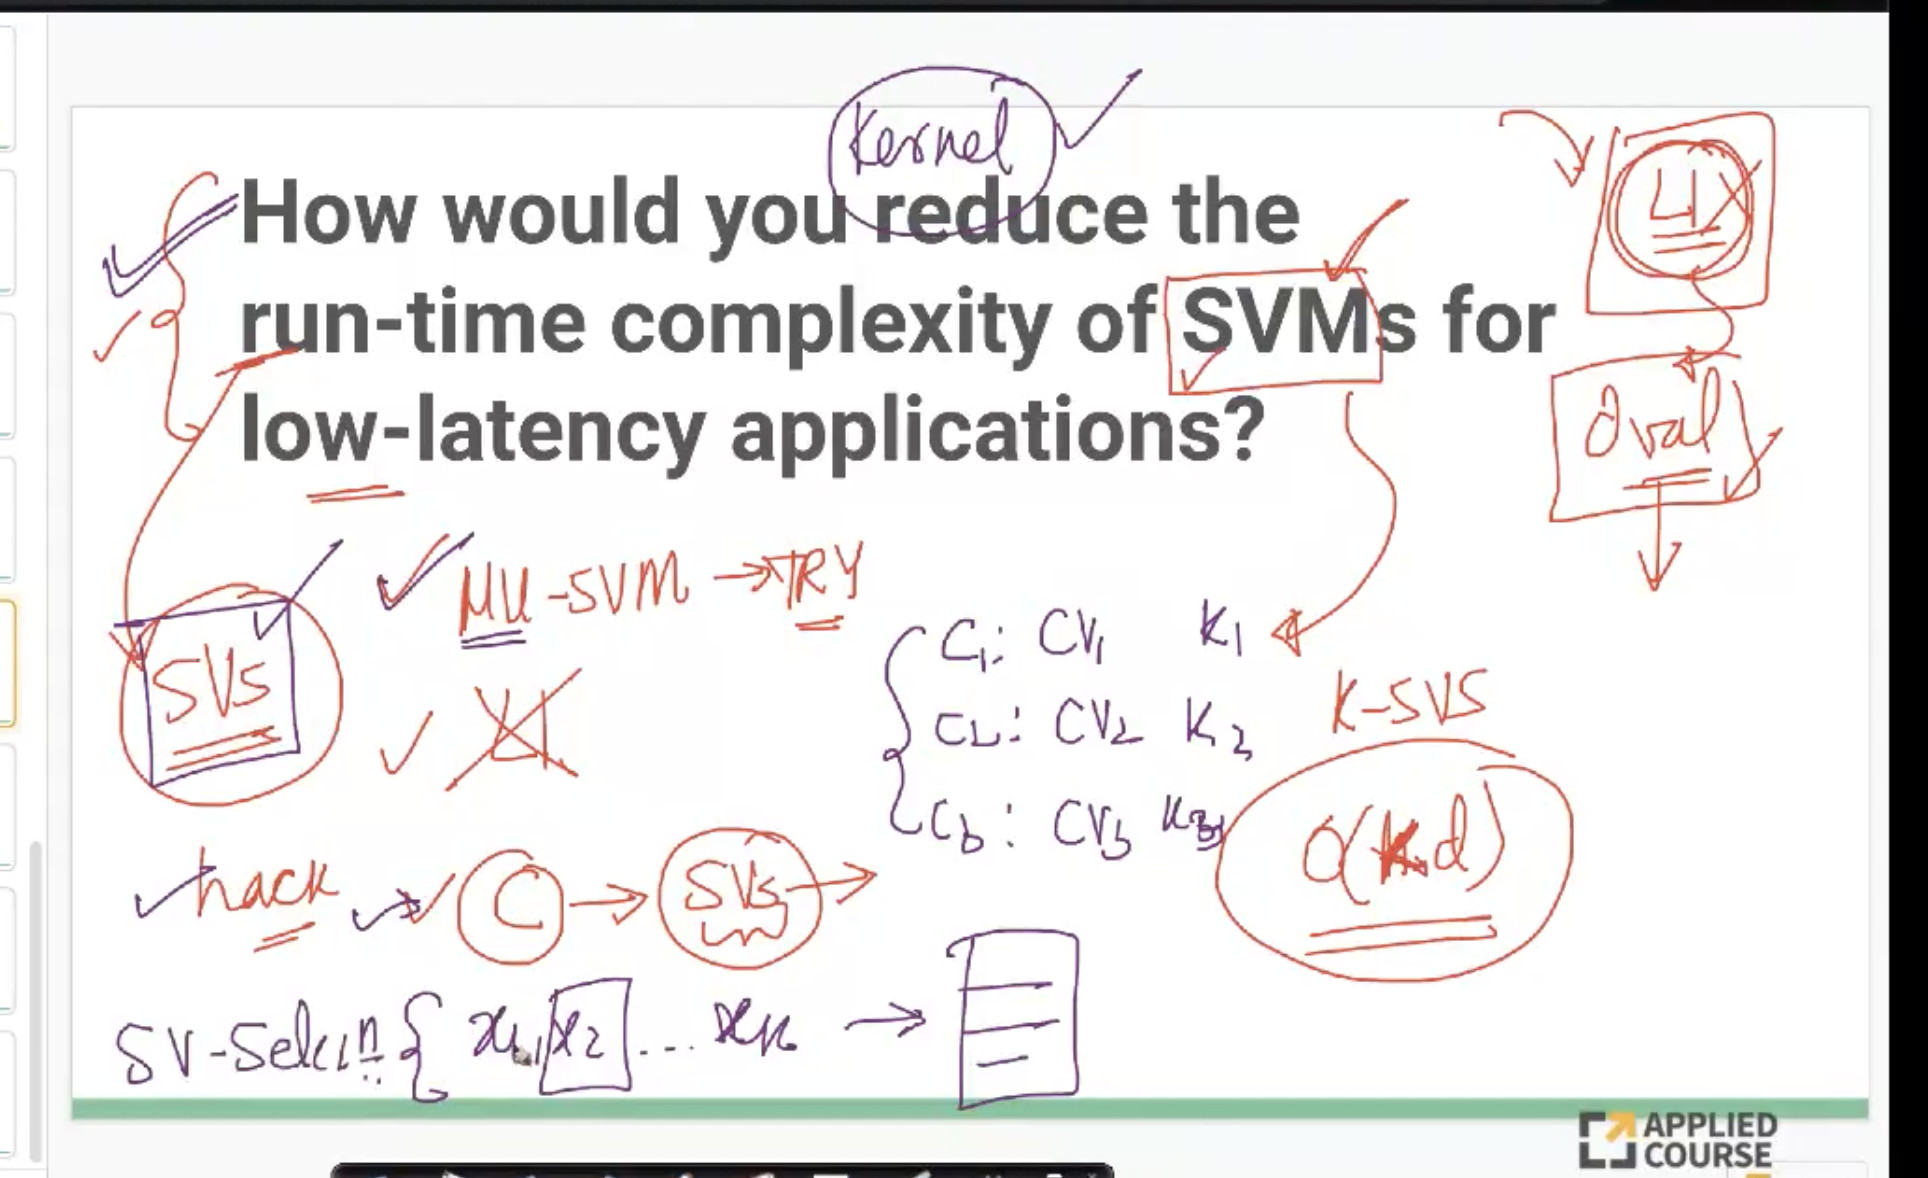 Kernel
How would you reduce the
run-time complexity of SVMs for
low-latency applications?
L1
dval
MU-SVM → TRY
SVs
L1
C1: CV1 K1
C2: CV2 K2
C3: CV3 K3
K-SVS
O(k.d)
hack → C → SVs →
SV-Selcn { x1, x2 .... xk →
APPLIED
COURSE